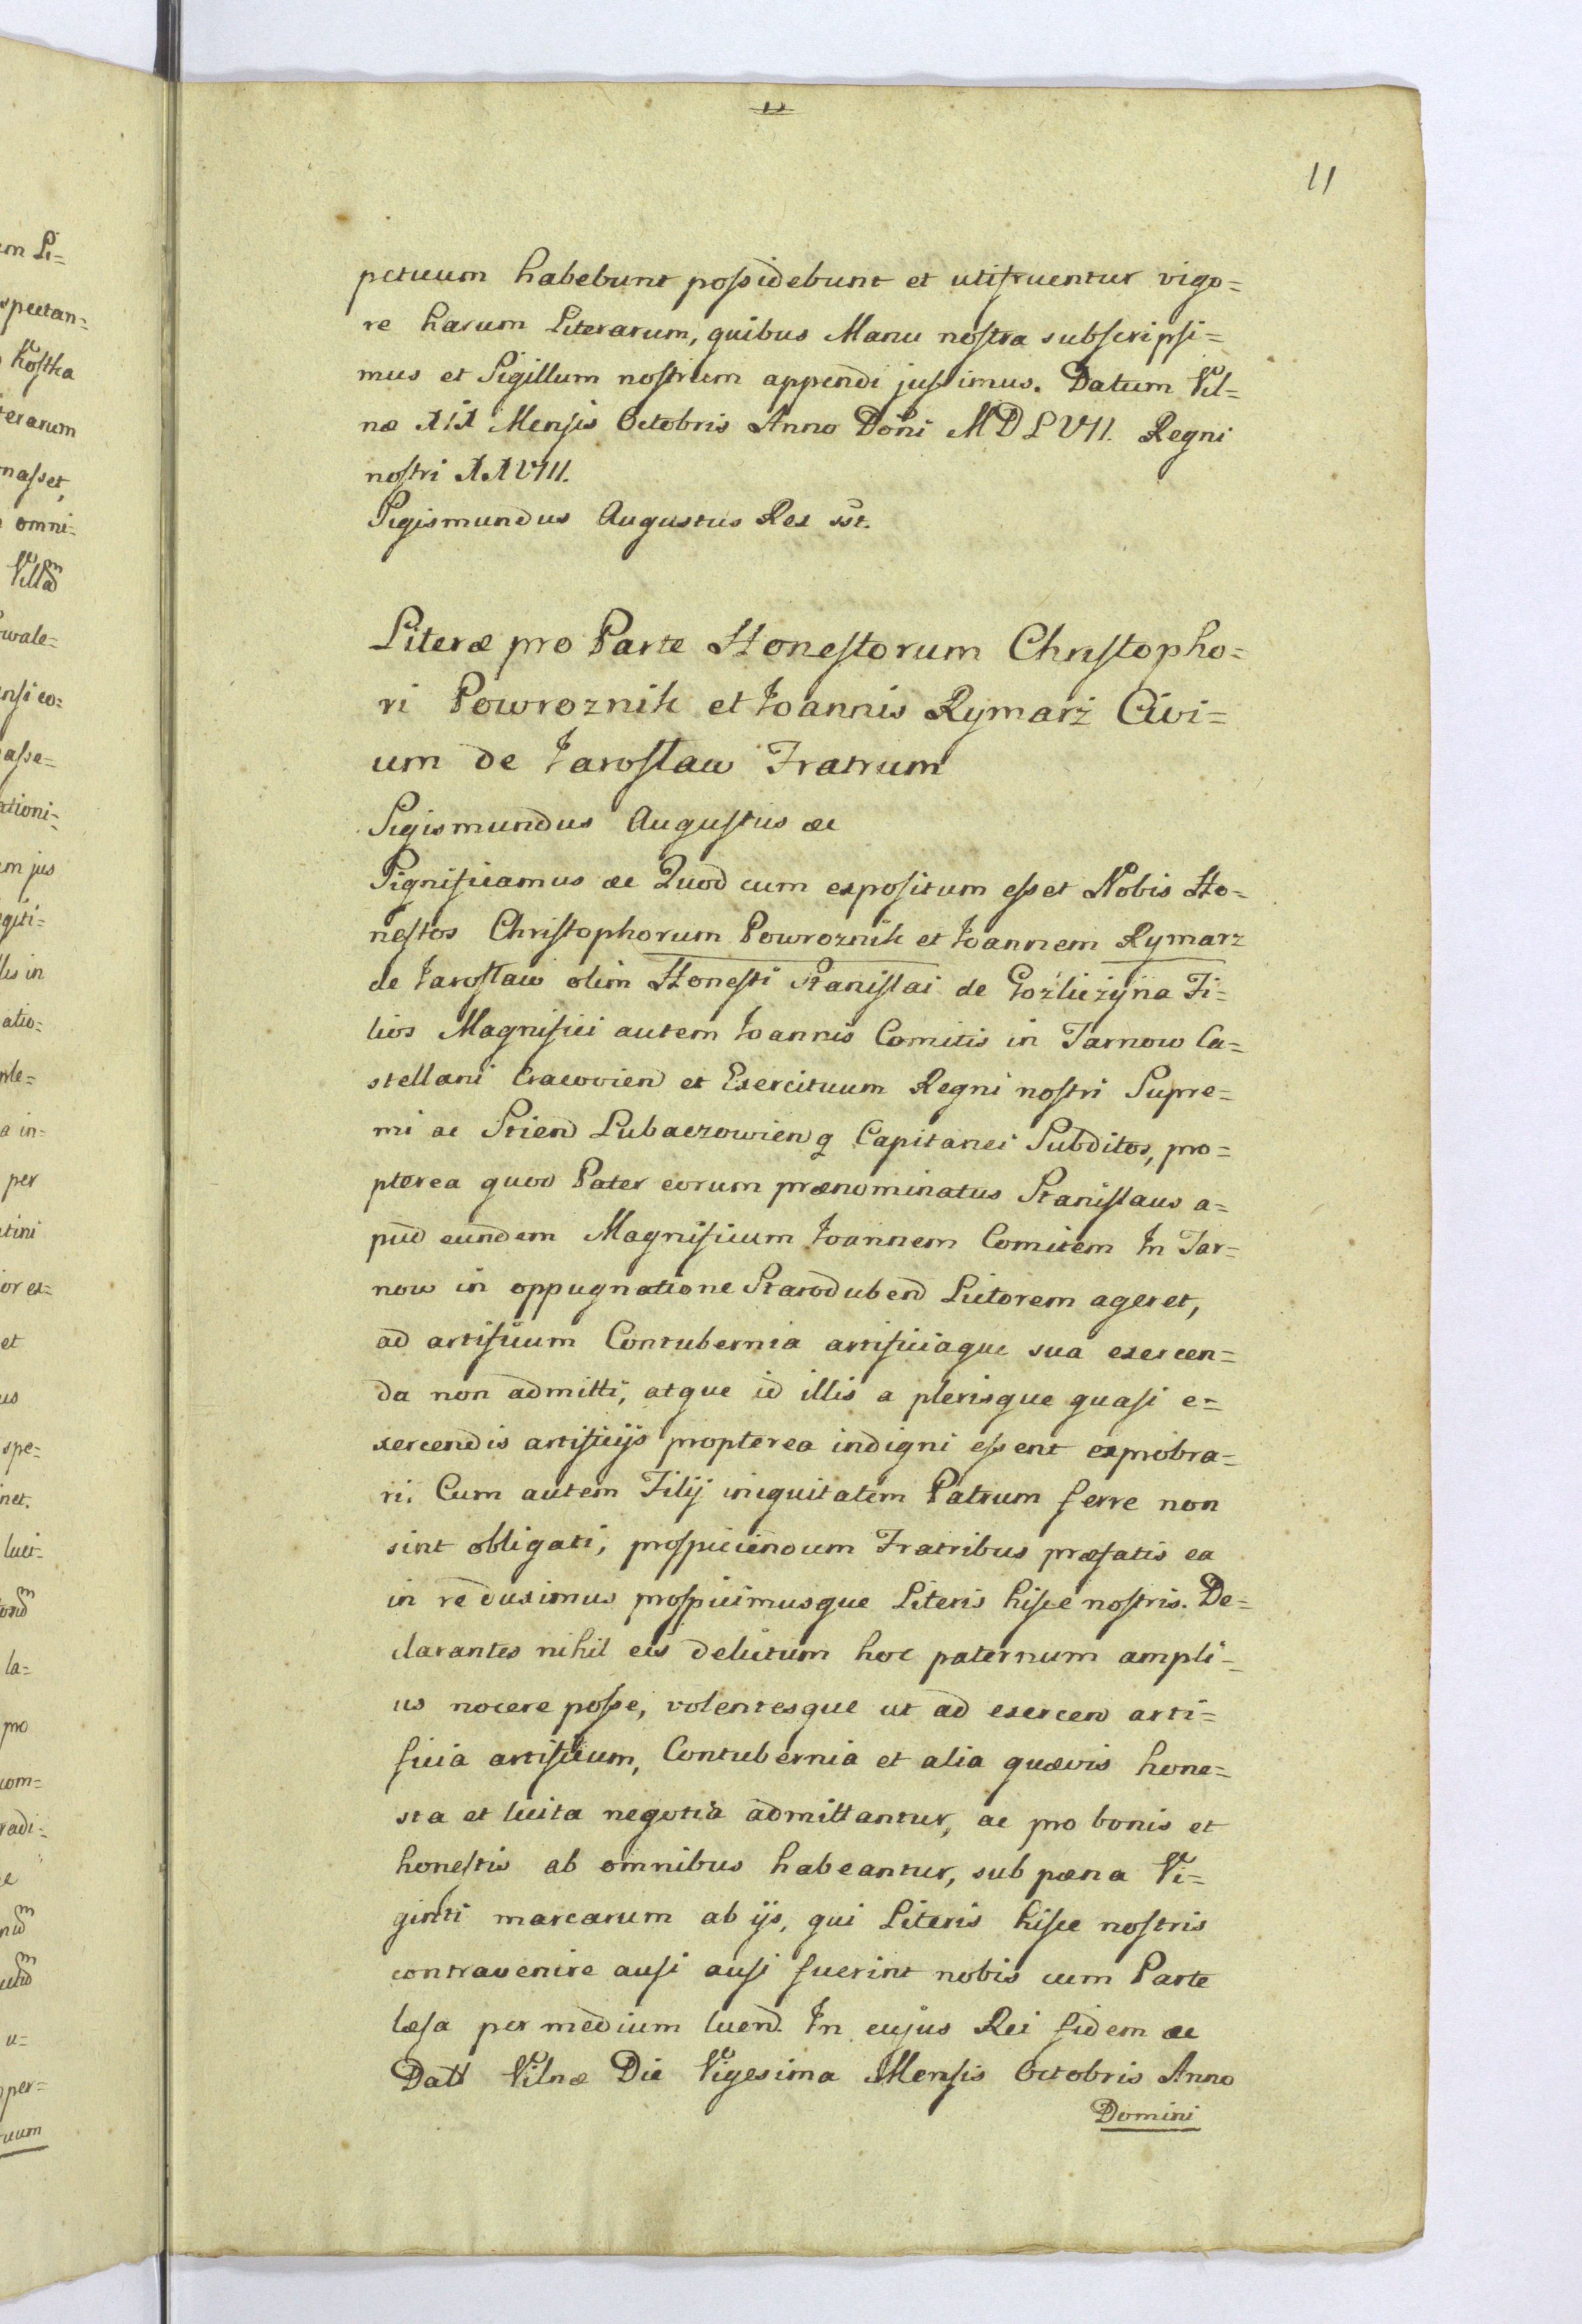 11
11
petuum habebunt possidebunt et utifruentur vigo=
re harum Literarum, quibus Manu nostra subscripsi=
mus et Sigillum nostrum appendi jussimus. Datum Vil=
næ XIX Mensis Octobris Anno Dońi MDLVII. Regni
nostri XXVIII.
Sigismundus Augustus Rex sst.
Literæ pro Parte Honestorum Christopho=
ri Powroznik et Joannis Rymarż Civi=
um de Jarosław Fratrum
Sigismundus Augustus æc
Significamus æc Quod cum expositum esset Nobis Ho=
nestos Christophorum Powroznik et Joannem Rymarz
de Jarosław olim Honesti Stanislai de Goźliczÿna Fi=
lios Magnifici autem Joannis Comitis in Tarnow Ca=
stellani Cracovien et Exercituum Regni nostri Supre=
mi ac Strien Lubaczowien q Capitanei Subditos, pro=
pterea quod Pater eorum prænominatus Stanislaus a=
pud eundem Magnificum Joannem Comitem In Tar=
now in oppugnatione Staroduben Lictorem ageret,
ad artificum Contubernia artificiaque sua exercen=
da non admitti, atque id illis a plerisque quasi e=
xercendis artificijs propterea indigni essent exprobra=
ri. Cum autem Filij iniquitatem Patrum ferre non
sint obligati, prospiciendum Fratribus præfatis ea
in re duximus prospicimusque Literis hisce nostris. De=
clarantes nihil eis delictum hoc paternum ampli=
us nocere posse, volentesque ut ad exercen arti=
ficia artificum, Contubernia et alia quævis hone=
sta et licita negotia admittantur, ac pro bonis et
honestis ab omnibus habeantur, sub pæna Vi=
ginti marcarum ab ijs, qui Literis hisce nostris
contravenire ausi ausi fuerint nobis cum Parte
læsa per medium luend. In cujus Rei fidem æc
Datt Vilnæ Die Vigesima Mensis Octobris Anno
Domini